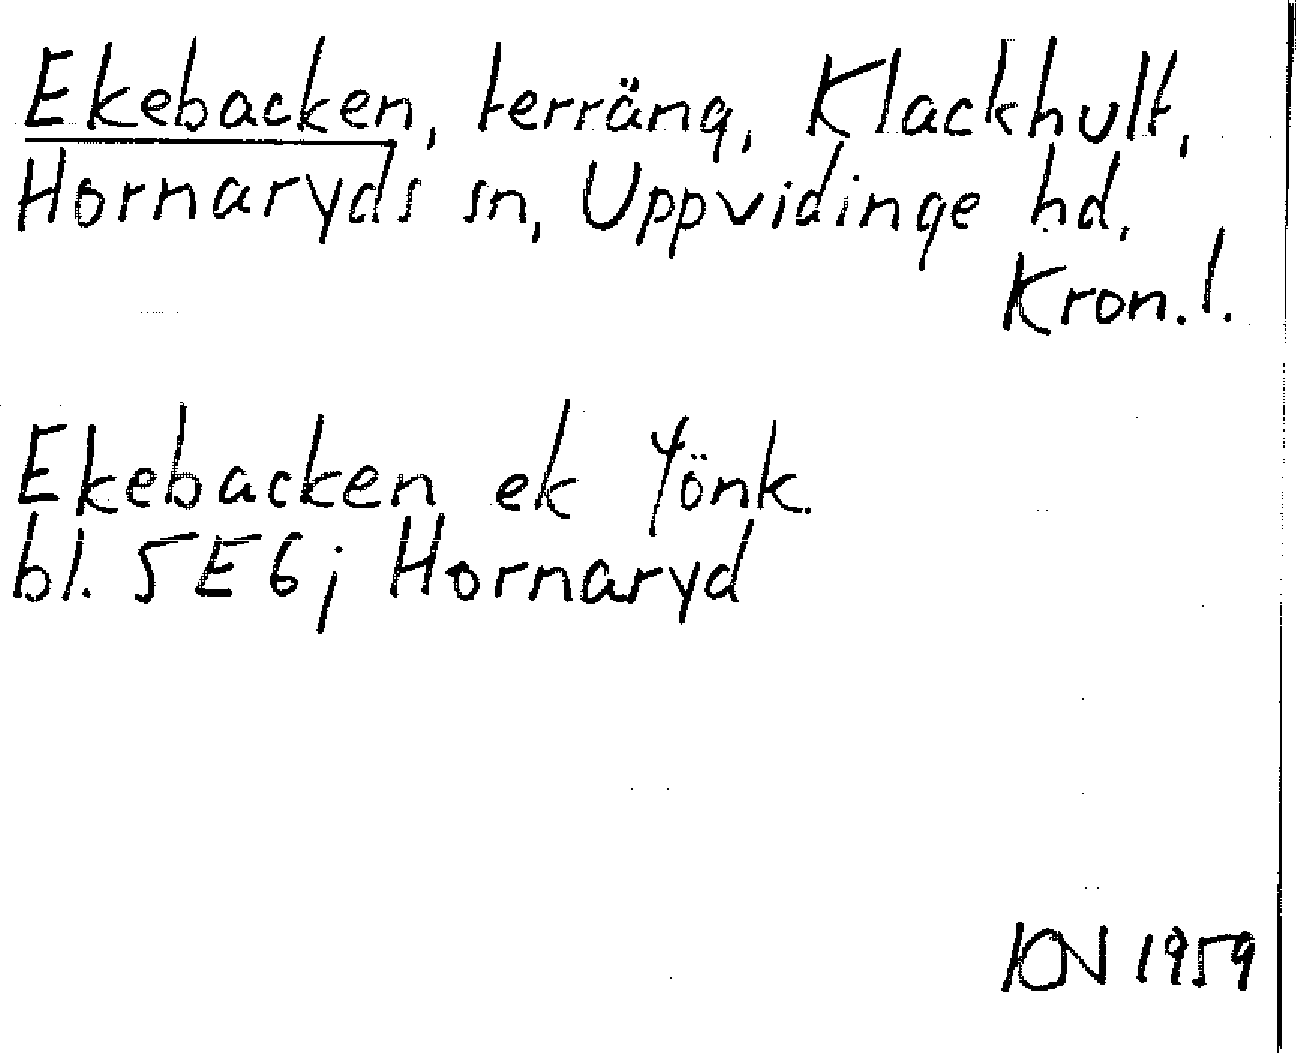 Ekebacken, terräng, Klackhult,
Hornaryds sn, Uppvidinge hd,
Kron. l.
Ekebacken ek Jönk.
bl. 5E6j Hornaryd
KN 1959